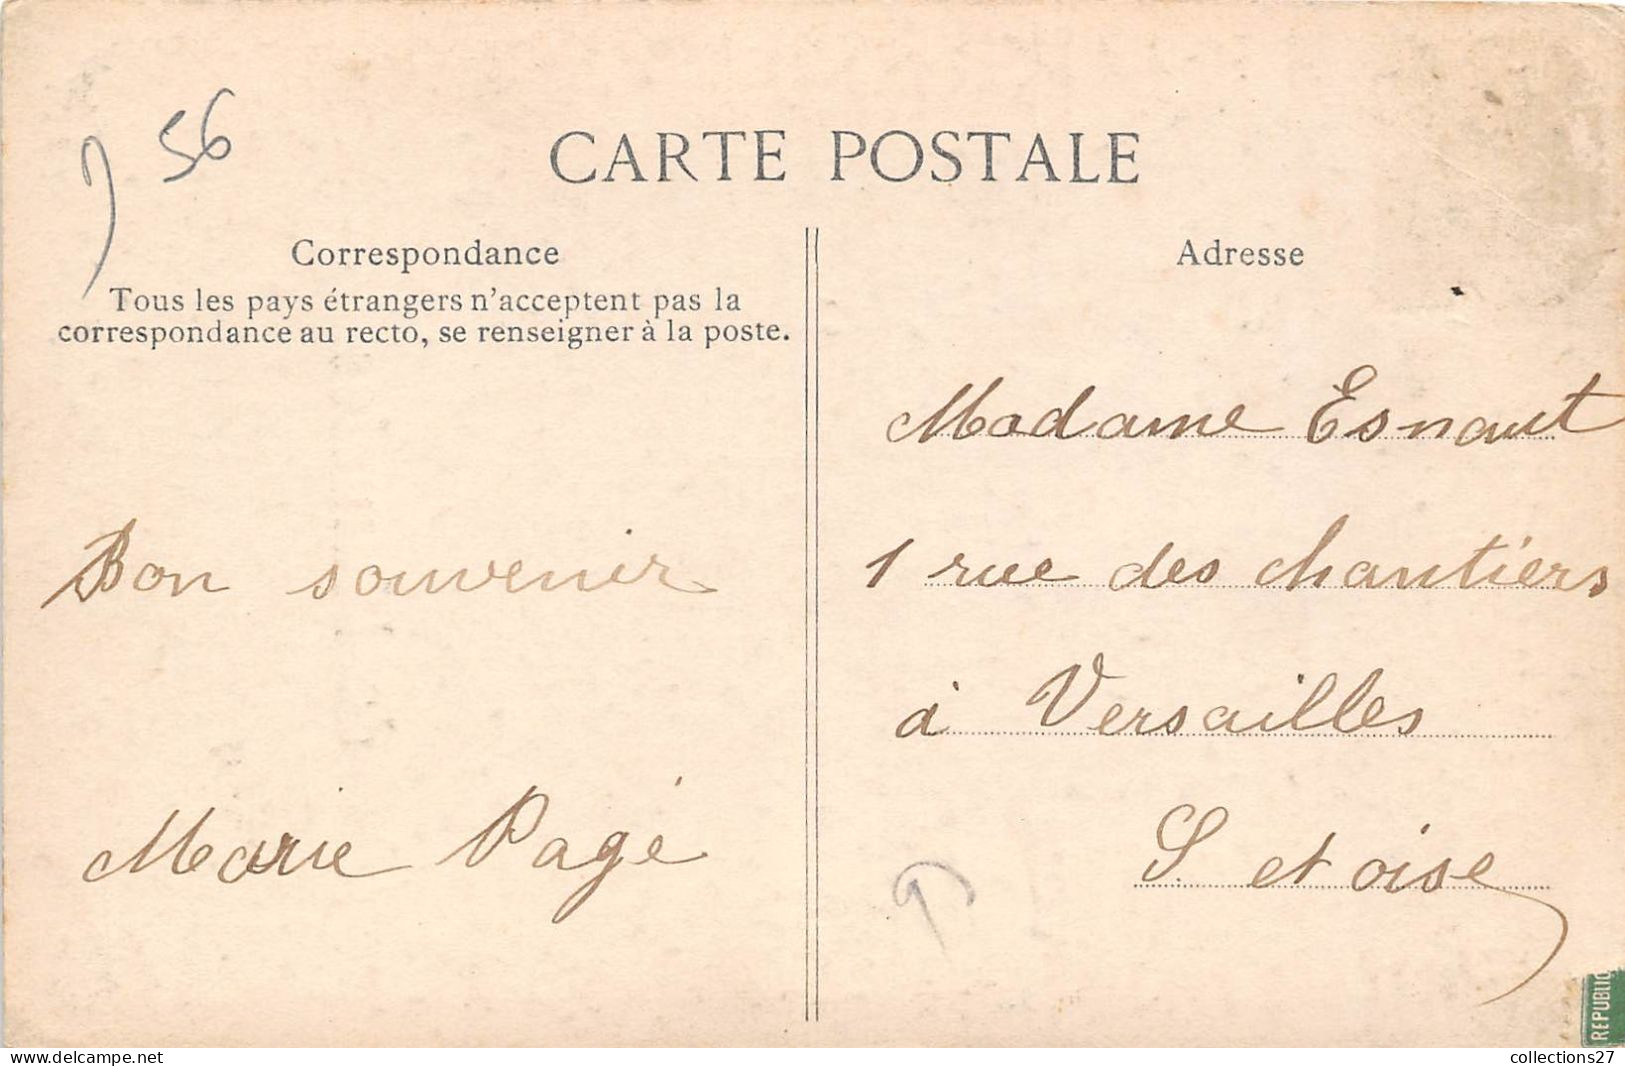 56
CARTE POSTALE
Correspondance
Tous les pays étrangers n'acceptent pas la
correspondance au recto, se renseigner à la poste.
Bon souvenir
Marie Pagé
Adresse
Madame Esnaut
1 rue des chantiers
à Versailles
S. et oise
REPUBLIQ
collections27